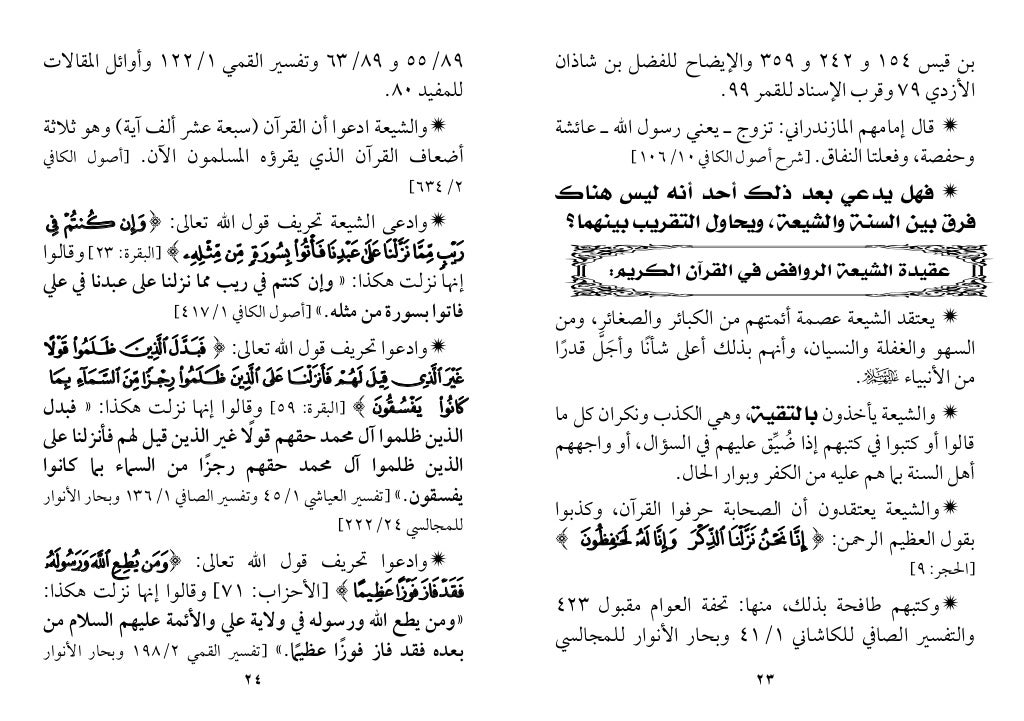 بن قيس ١٥٤ و ٢٤٢ و ٣٥٩ والإيضاح للفضل بن شاذان
الأزدي ٧٩ وقرب الإسناد للقمر ٩٩.
✷ قال إمامهم المازندراني: تزوج ـ يعني رسول الله ـ عائشة
وحفصة، وفعلتا النفاق. [شرح أصول الكافي ١٠/ ١٠٦]
✷ فهل يدعي بعد ذلك أحد أنه ليس هناك
فرق بين السنة والشيعة، ويحاول التقريب بينهما؟
عقيدة الشيعة الروافض في القرآن الكريم:
✷ يعتقد الشيعة عصمة أئمتهم من الكبائر والصغائر، ومن
السهو والغفلة والنسيان، وأنهم بذلك أعلى شأنًا وأجَلَّ قدرًا
من الأنبياء عليهم السلام.
✷ والشيعة يأخذون بالتقية، وهي الكذب ونكران كل ما
قالوا أو كتبوا في كتبهم إذا ضُيِّق عليهم في السؤال، أو واجههم
أهل السنة بما هم عليه من الكفر وبوار الحال.
✷ والشيعة يعتقدون أن الصحابة حرفوا القرآن، وكذبوا
بقول العظيم الرحمن: ﴿ إِنَّا نَحْنُ نَزَّلْنَا ٱلذِّكْرَ وَإِنَّا لَهُۥ لَحَٰفِظُونَ ﴾
[الحجر: ٩]
✷ وكتبهم طافحة بذلك، منها: تحفة العوام مقبول ٤٢٣
والتفسير الصافي للكاشاني ١/ ٤١ وبحار الأنوار للمجالسي
٢٣
٨٩/ ٥٥ و ٨٩/ ٦٣ وتفسير القمي ١/ ١٢٢ وأوائل المقالات
للمفيد ٨٠.
✷ والشيعة ادعوا أن القرآن (سبعة عشر ألف آية) وهو ثلاثة
أضعاف القرآن الذي يقرؤه المسلمون الآن. [أصول الكافي
٢/ ٦٣٤]
✷ وادعى الشيعة تحريف قول الله تعالى: ﴿ وَإِن كُنتُمْ فِى
رَيْبٍ مِّمَّا نَزَّلْنَا عَلَىٰ عَبْدِنَا فَأْتُوا۟ بِسُورَةٍ مِّن مِّثْلِهِۦ ﴾ [البقرة: ٢٣] وقالوا
إنها نزلت هكذا: « وإن كنتم في ريب مما نزلنا على عبدنا في علي
فاتوا بسورة من مثله.» [أصول الكافي ١/ ٤١٧]
✷ وادعوا تحريف قول الله تعالى: ﴿ فَبَدَّلَ ٱلَّذِينَ ظَلَمُوا۟ قَوْلًا
غَيْرَ ٱلَّذِى قِيلَ لَهُمْ فَأَنزَلْنَا عَلَى ٱلَّذِينَ ظَلَمُوا۟ رِجْزًا مِّنَ ٱلسَّمَآءِ بِمَا
كَانُوا۟ يَفْسُقُونَ ﴾ [البقرة: ٥٩] وقالوا إنها نزلت هكذا: « فبدل
الذين ظلموا آل محمد حقهم قولًا غير الذين قيل لهم فأنزلنا على
الذين ظلموا آل محمد حقهم رجزًا من السماء بما كانوا
يفسقون.» [تفسير العياشي ١/ ٤٥ وتفسير الصافي ١/ ١٣٦ وبحار الأنوار
للمجالسي ٢٤/ ٢٢٢]
✷ وادعوا تحريف قول الله تعالى: ﴿وَمَن يُطِعِ ٱللَّهَ وَرَسُولَهُۥ
فَقَدْ فَازَ فَوْزًا عَظِيمًا ﴾ [الأحزاب: ٧١] وقالوا إنها نزلت هكذا:
«ومن يطع الله ورسوله في ولاية علي والأئمة عليهم السلام من
بعده فقد فاز فوزًا عظيمًا.» [تفسير القمي ٢/ ١٩٨ وبحار الأنوار
٢٤